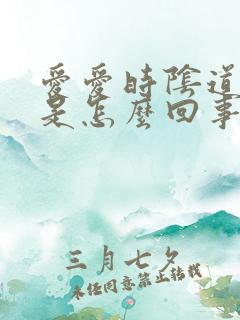 愛愛時陰道
是怎麼回事
三月七夕
未經同意禁止轉載